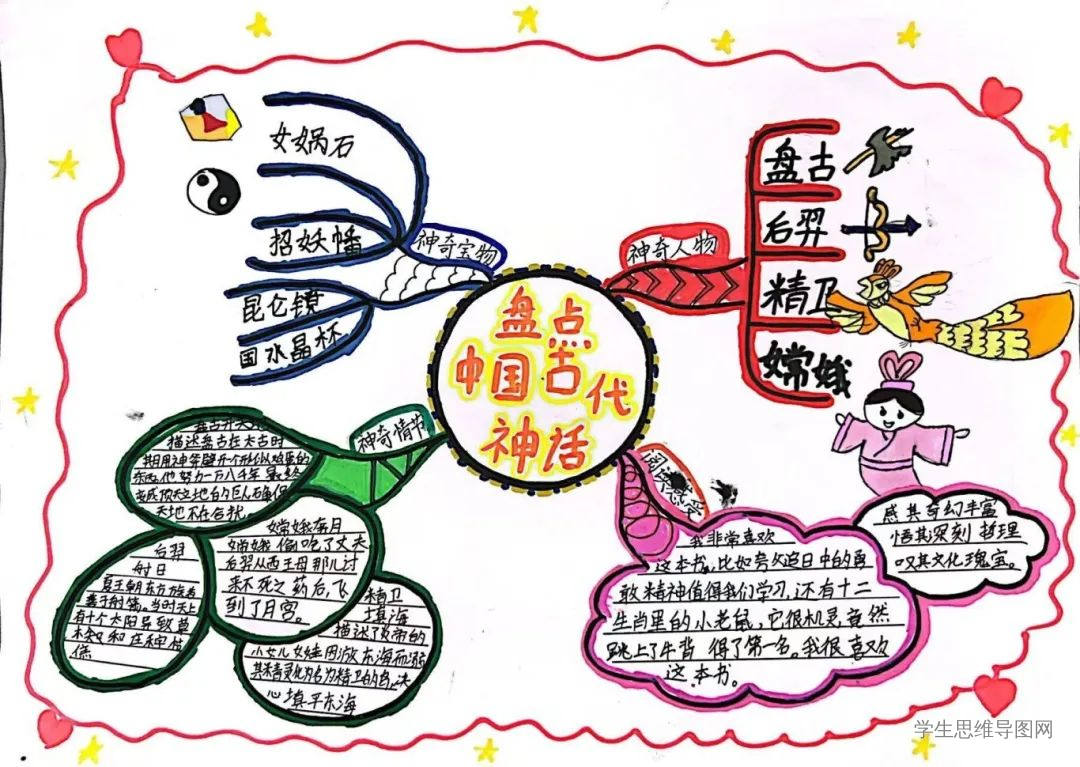 盘点
中国古代
神话
神奇宝物
女娲石
招妖幡
昆仑镜
国水晶杯
神奇人物
盘古
后羿
精卫
嫦娥
神奇情节
盘古开天
描述盘古在太古时
期用神斧劈开一个形似鸡蛋的
东西,他努力一万八千年最终
天地不在合拢
后羿
射日
夏王朝东方族着
善于射箭。当时天上
有十个太阳导致草
嫦娥奔月
嫦娥偷吃了丈夫
后羿从西王母那儿讨
来不死之药后,飞
到了月宫。
精卫
填海
描述了炎帝的
小女儿女娃因游东海而溺
心填平东海
阅读感受
我非常喜欢
这本书,比如夸父追日中的勇
敢精神值得我们学习,还有十二
生肖里的小老鼠,它很机灵竟然
跳上了牛背 得了第一名。我很喜欢
这本书。
感其奇幻丰富
悟其深刻 哲理
叹其文化瑰宝。
学生思维导图网